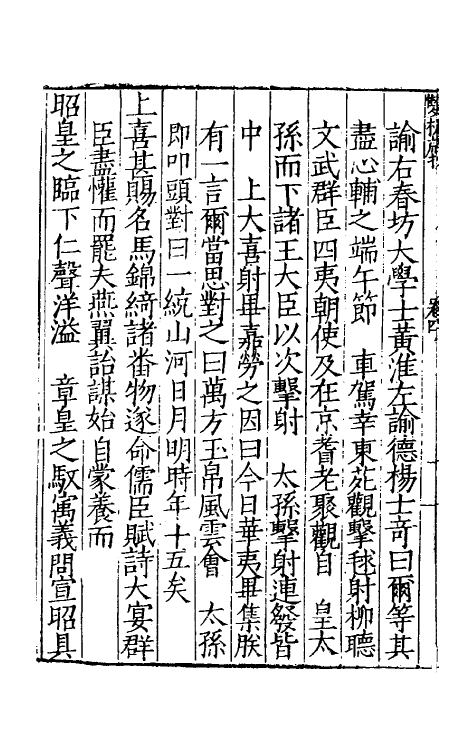 諭右春坊大學士黃淮左諭德楊士竒曰爾等其
盡心輔之端午節　車駕幸東苑觀擊毬射柳聽
文武群臣四夷朝使及在京耆老聚觀自　皇太
孫而下諸王大臣以次擊射　太孫擊射連發皆
中　上大喜射畢嘉勞之因曰今日華夷畢集朕
有一言爾當思對之曰萬方玉帛風雲會　太孫
即叩頭對曰一統山河日月明時年十五矣
上喜甚賜名馬錦綺諸畨物遂命儒臣賦詩大宴群
臣盡懽而罷夫燕翼詒謀始自蒙養而
昭皇之臨下仁聲洋溢　章皇之馭寓義問宣昭具